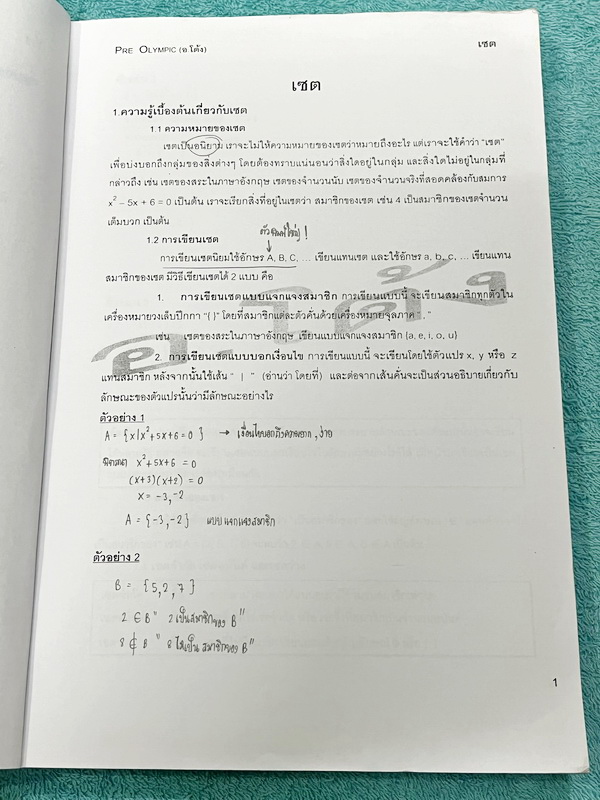 PRE OLYMPIC (อ.โต้ง) เซต
เซต
1.ความรู้เบื้องต้นเกี่ยวกับเซต
1.1 ความหมายของเซต
เซตเป็นอนิยาม เราจะไม่ให้ความหมายของเซตว่าหมายถึงอะไร แต่เราจะใช้คำว่า "เซต"
เพื่อบ่งบอกถึงกลุ่มของสิ่งต่างๆ โดยต้องทราบแน่นอนว่าสิ่งใดอยู่ในกลุ่ม และสิ่งใดไม่อยู่ในกลุ่มที่
กล่าวถึง เช่น เซตของสระในภาษาอังกฤษ เซตของจำนวนนับ เซตของจำนวนจริงที่สอดคล้องกับสมการ
x² – 5x + 6 = 0 เป็นต้น เราจะเรียกสิ่งที่อยู่ในเซตว่า สมาชิกของเซต เช่น 4 เป็นสมาชิกของเซตจำนวน
เต็มบวก เป็นต้น
ตัวพิมพ์ใหญ่ !
1.2 การเขียนเซต
การเขียนเซตนิยมใช้อักษร A, B, C, ... เขียนแทนเซต และใช้อักษร a, b, c, ... เขียนแทน
สมาชิกของเซต มีวิธีเขียนเซตได้ 2 แบบ คือ
1. การเขียนเซตแบบแจกแจงสมาชิก การเขียนแบบนี้ จะเขียนสมาชิกทุกตัวใน
เครื่องหมายวงเล็บปีกกา "{ }" โดยที่สมาชิกแต่ละตัวคั่นด้วยเครื่องหมายจุลภาค " , "
เช่น เซตของสระในภาษาอังกฤษ เขียนแบบแจกแจงสมาชิก {a, e, i, o, u}
อ.โต้ง
2. การเขียนเซตแบบบอกเงื่อนไข การเขียนแบบนี้ จะเขียนโดยใช้ตัวแปร x, y หรือ z
แทนสมาชิก หลังจากนั้นใช้เส้น " | " (อ่านว่า โดยที่) และต่อจากเส้นคั่นจะเป็นส่วนอธิบายเกี่ยวกับ
ลักษณะของตัวแปรนั้นว่ามีลักษณะอย่างไร
ตัวอย่าง 1
A = {x|x²+5x+6=0} → เงื่อนไขบอกถึงความยาก,ง่าย
พิจารณา x²+5x+6 = 0
(x+3)(x+2) = 0
x = -3,-2
A = {-3,-2} แบบแจกแจงสมาชิก
ตัวอย่าง 2
B = {5,2,7}
2 ∈ B " 2 เป็นสมาชิกของ B"
8 ∉ B " 8 ไม่เป็นสมาชิกของ B"
1